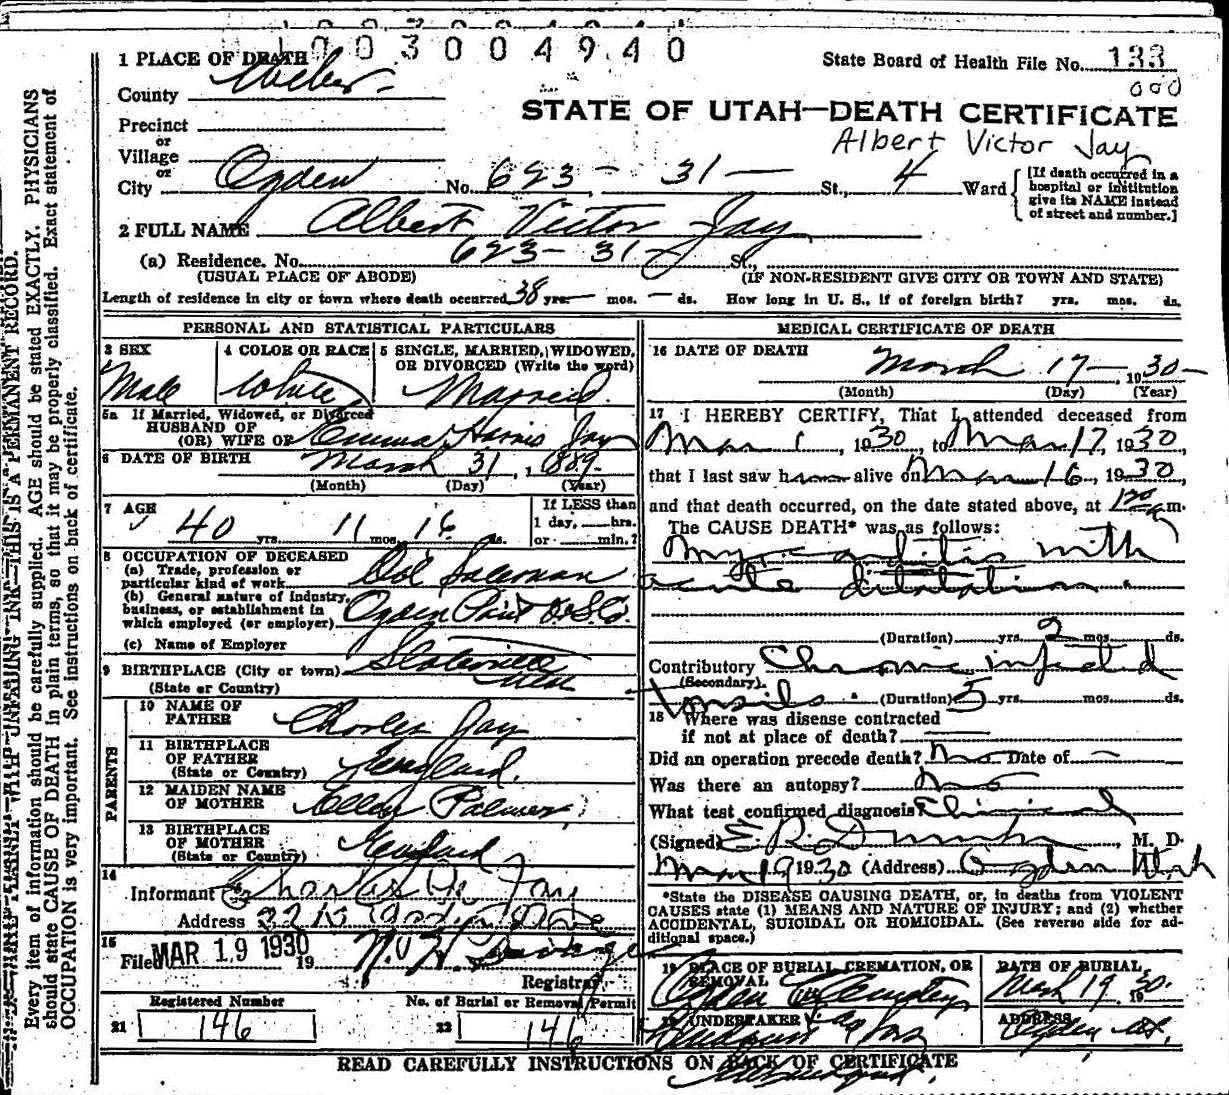 1003004940
1 PLACE OF DEATH
State Board of Health File No. 133
County Weber
000
STATE OF UTAH—DEATH CERTIFICATE
Precinct
or
Village
Albert Victor Jay
or
City Ogden No. 623 - 31 - St., 4 Ward
[If death occurred in a hospital or institution give its NAME instead of street and number.]
2 FULL NAME Albert Victor Jay
(a) Residence. No. 623 - 31 St.,
(USUAL PLACE OF ABODE) (IF NON-RESIDENT GIVE CITY OR TOWN AND STATE)
Length of residence in city or town where death occurred 38 yrs. — mos. — ds. How long in U. S., if of foreign birth? yrs. mos. ds.
PERSONAL AND STATISTICAL PARTICULARS
3 SEX Male
4 COLOR OR RACE White
5 SINGLE, MARRIED, WIDOWED, OR DIVORCED (Write the word) Married
5a If Married, Widowed, or Divorced
HUSBAND OF
(OR) WIFE OF Emma Harris Jay
6 DATE OF BIRTH March 31, 1889
(Month) (Day) (Year)
7 AGE 40 yrs. 11 mos. 16 ds.
If LESS than 1 day, ___hrs. or ___min.?
8 OCCUPATION OF DECEASED
(a) Trade, profession or particular kind of work Salesman
(b) General nature of industry, business, or establishment in which employed (or employer) Ogden Paint O. & G. Co.
(c) Name of Employer
9 BIRTHPLACE (City or town) Slaterville
(State or Country) Utah
PARENTS
10 NAME OF FATHER Charles Jay
11 BIRTHPLACE OF FATHER (State or Country) England.
12 MAIDEN NAME OF MOTHER Ellen Palmer
13 BIRTHPLACE OF MOTHER (State or Country) England
14
Informant Charles W. Jay
Address
15
Filed MAR 19 1930 19
Registrar
Registered Number
21 146
No. of Burial or Removal Permit
22 146
MEDICAL CERTIFICATE OF DEATH
16 DATE OF DEATH March 17 — 1930
(Month) (Day) (Year)
17 I HEREBY CERTIFY, That I attended deceased from
Mar 1, 1930, to Mar 17, 1930
that I last saw him alive on Mar 16, 1930
and that death occurred, on the date stated above, at m.
The CAUSE DEATH* was as follows:
Myocarditis with
acute dilatation
(Duration) yrs. 2 mos. ds.
Contributory Chronic infected
(Secondary)
tonsils (Duration) 5 yrs. mos. ds.
18 Where was disease contracted
if not at place of death?
Did an operation precede death? No Date of —
Was there an autopsy? No
What test confirmed diagnosis Clinical
(Signed) E R Dumke, M. D.
Mar 19 1930 (Address) Ogden Utah
*State the DISEASE CAUSING DEATH, or, in deaths from VIOLENT
CAUSES state (1) MEANS AND NATURE OF INJURY; and (2) whether
ACCIDENTAL, SUICIDAL OR HOMICIDAL. (See reverse side for ad-
ditional space.)
19 PLACE OF BURIAL, CREMATION, OR REMOVAL Ogden Cemetery
DATE OF BURIAL, March 19 1930.
20 UNDERTAKER
ADDRESS Ogden Ut.
READ CAREFULLY INSTRUCTIONS ON BACK OF CERTIFICATE
Every item of information should be carefully supplied. AGE should be stated EXACTLY. PHYSICIANS
should state CAUSE OF DEATH in plain terms, so that it may be properly classified. Exact statement of
OCCUPATION is very important. See instructions on back of certificate.